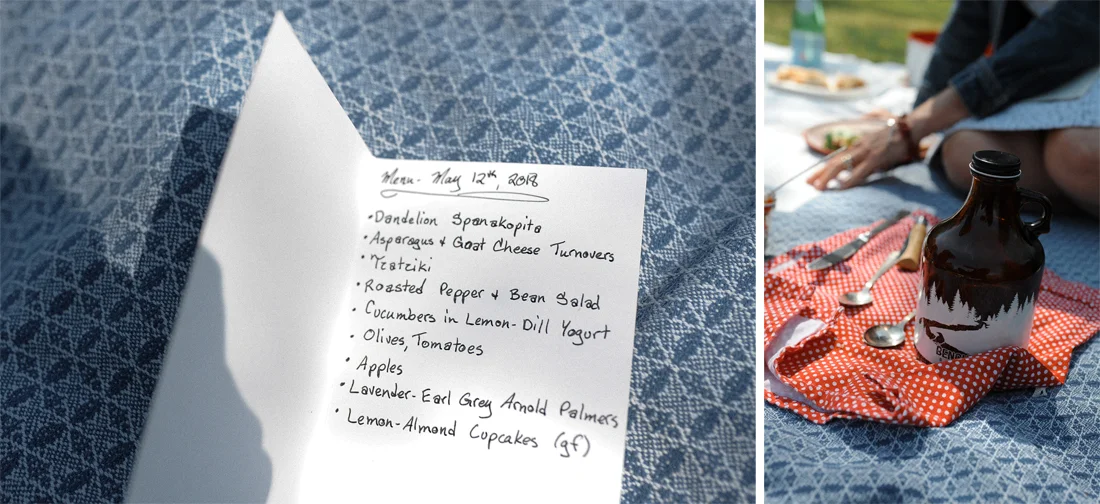 Menu - May 12th, 2018
• Dandelion Spanakopita
• Asparagus & Goat Cheese Turnovers
• Tzatziki
• Roasted Pepper & Bean Salad
• Cucumbers in Lemon-Dill Yogurt
• Olives, Tomatoes
• Apples
• Lavender-Earl Grey Arnold Palmers
• Lemon-Almond Cupcakes (gf)